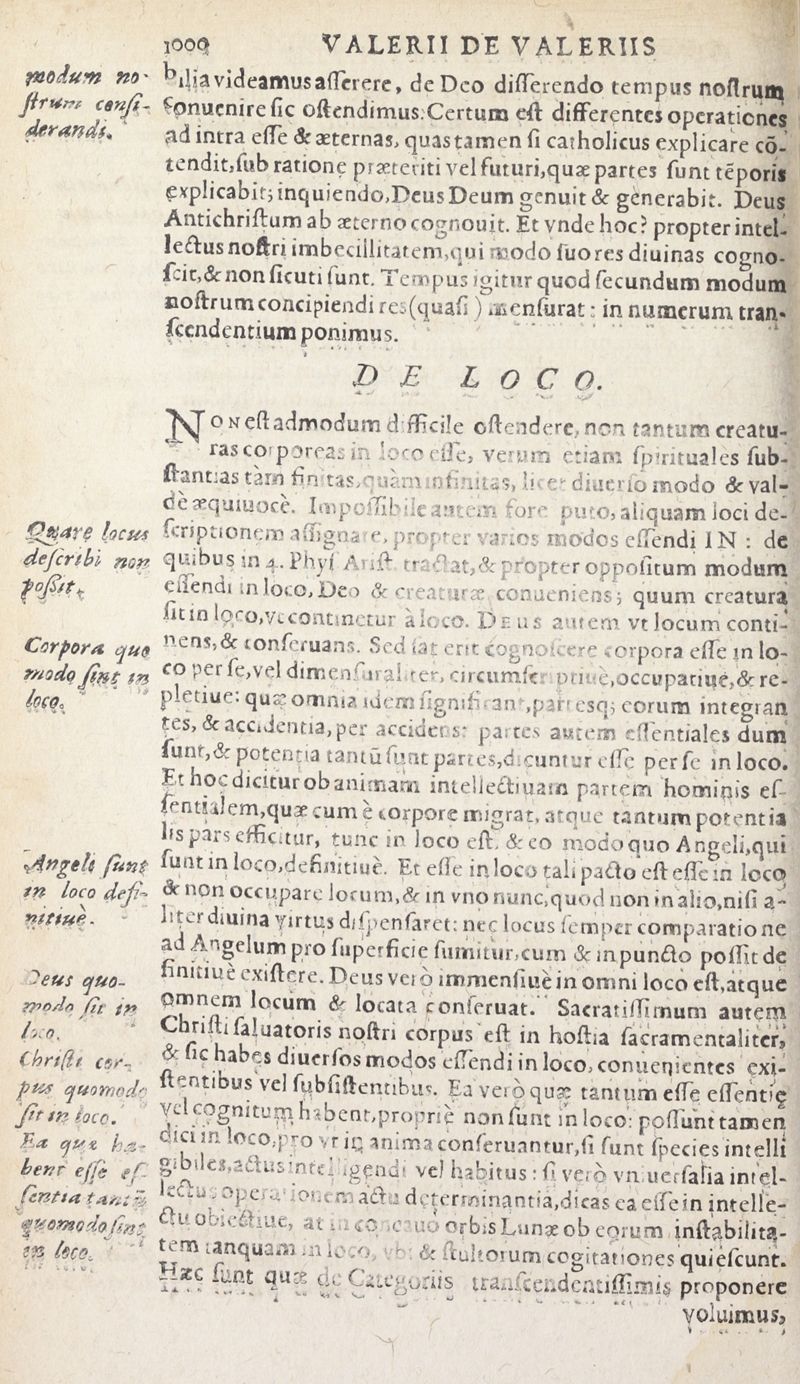 1009 VALERII DE VALERIIS
modum no-
strum consi-
derandi.
bilia videamus asserere, de Deo disserendo tempus nostrum
conuenire sic ostendimus: Certum est differentes operationes
ad intra esse & æternas, quas tamen si catholicus explicare cō-
tendit, sub ratione præteriti vel futuri, quæ partes sunt tēporis
explicabit; inquiendo, Deus Deum genuit & generabit. Deus
Antichristum ab æterno cognouit. Et vnde hoc? propter intel-
lectus nostri imbecillitatem, qui modo suo res diuinas cogno-
scit, & non sicuti sunt. Tempus igitur quod secundum modum
nostrum concipiendi res (quasi) mensurat: in numerum tran-
scendentium ponimus.
DE LOCO.
NON est admodum difficile ostendere, non tantum creatu-
ras corporeas in loco esse, verum etiam spirituales sub-
stantias tàm finitas, quàm infinitas, licet diuerso modo & val-
de æquiuocè. Impossibile autem fore puto, aliquam loci de-
Quare locus
describi non
possit.
scriptionem assignare, propter varios modos essendi IN: de
quibus in 4. Phys Arist. tractat, & propter oppositum modum
essendi in loco, Deo & creaturæ conueniens; quum creatura
sit in loco, vt continetur à loco. DEUS autem vt locum conti-
Corpora quo
modo sint in
loco.
nens, & conseruans. Sed sat erit cognoscere corpora esse in lo-
co per se, vel dimensuraliter, circumscriptiuè, occupatiuè, & re-
pletiue: quæ omnia idem significant, partesq; eorum integran
tes, & accidentia, per accidens: partes autem essentiales dum
sunt, & potentia tantū sunt partes, dicuntur esse per se in loco.
Et hoc dicitur ob animam intellectiuam partem hominis es-
sentialem, quæ cum è corpore migrat, atque tantum potentia
lis pars efficitur, tunc in loco est, & eo modo quo Angeli, qui
Angeli sunt
in loco defi-
nitiuè.
sunt in loco, definitiuè. Et esse in loco tali pacto est esse in loco
& non occupare locum, & in vno nunc, quod non in alio, nisi a-
liter diuina virtus dispensaret: nec locus semper comparatione
ad Angelum pro superficie sumitur, cum & in puncto possit de
finitiuè existere. Deus verò immensiuè in omni loco est, atque
Deus quo-
modo sit in
loco.
omnem locum & locata conseruat. Sacratissimum autem
Christi saluatoris nostri corpus est in hostia sacramentaliter,
Christi cor-
pus quomodo
sit in loco.
& sic habes diuersos modos essendi in loco, conuenientes exi-
stentibus vel subsistentibus. Ea verò quæ tantum esse essentiæ
vel cognitum habent, propriè non sunt in loco: possunt tamen
Ea quæ ha-
bent esse es-
sentia tantū
quomodo sint
in loco.
dici in loco, pro vt in anima conseruantur, si sunt species intelli
gibiles, actus intelligendi vel habitus: si verò vniuersalia intel-
lectus operationem actu determinantia, dicas ea esse in intelle-
ctu obiectiue, at in concauo orbis Lunæ ob eorum instabilita-
tem tanquam in loco, vbi & stultorum cogitationes quiescunt.
Hæc sunt quæ de Categoriis transcendentissimis proponere
voluimus,